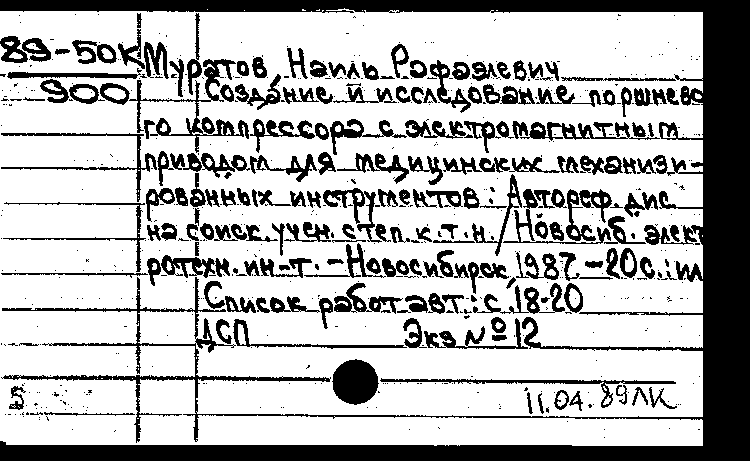 89-50К
900
Муратов, Наиль Рафаэлевич
Создание и исследование поршнево
го компрессора с электромагнитным
приводом для медицинских механизи-
рованных инструментов : Автореф. дис.
на соиск. учен. степ. к.т.н. / Новосиб. элект
ротехн. ин-т. - Новосибирск, 1987. - 20 с. : ил
Список работ авт.: с. 18-20
ДСП Экз № 12
5
11.04.89 ЛК